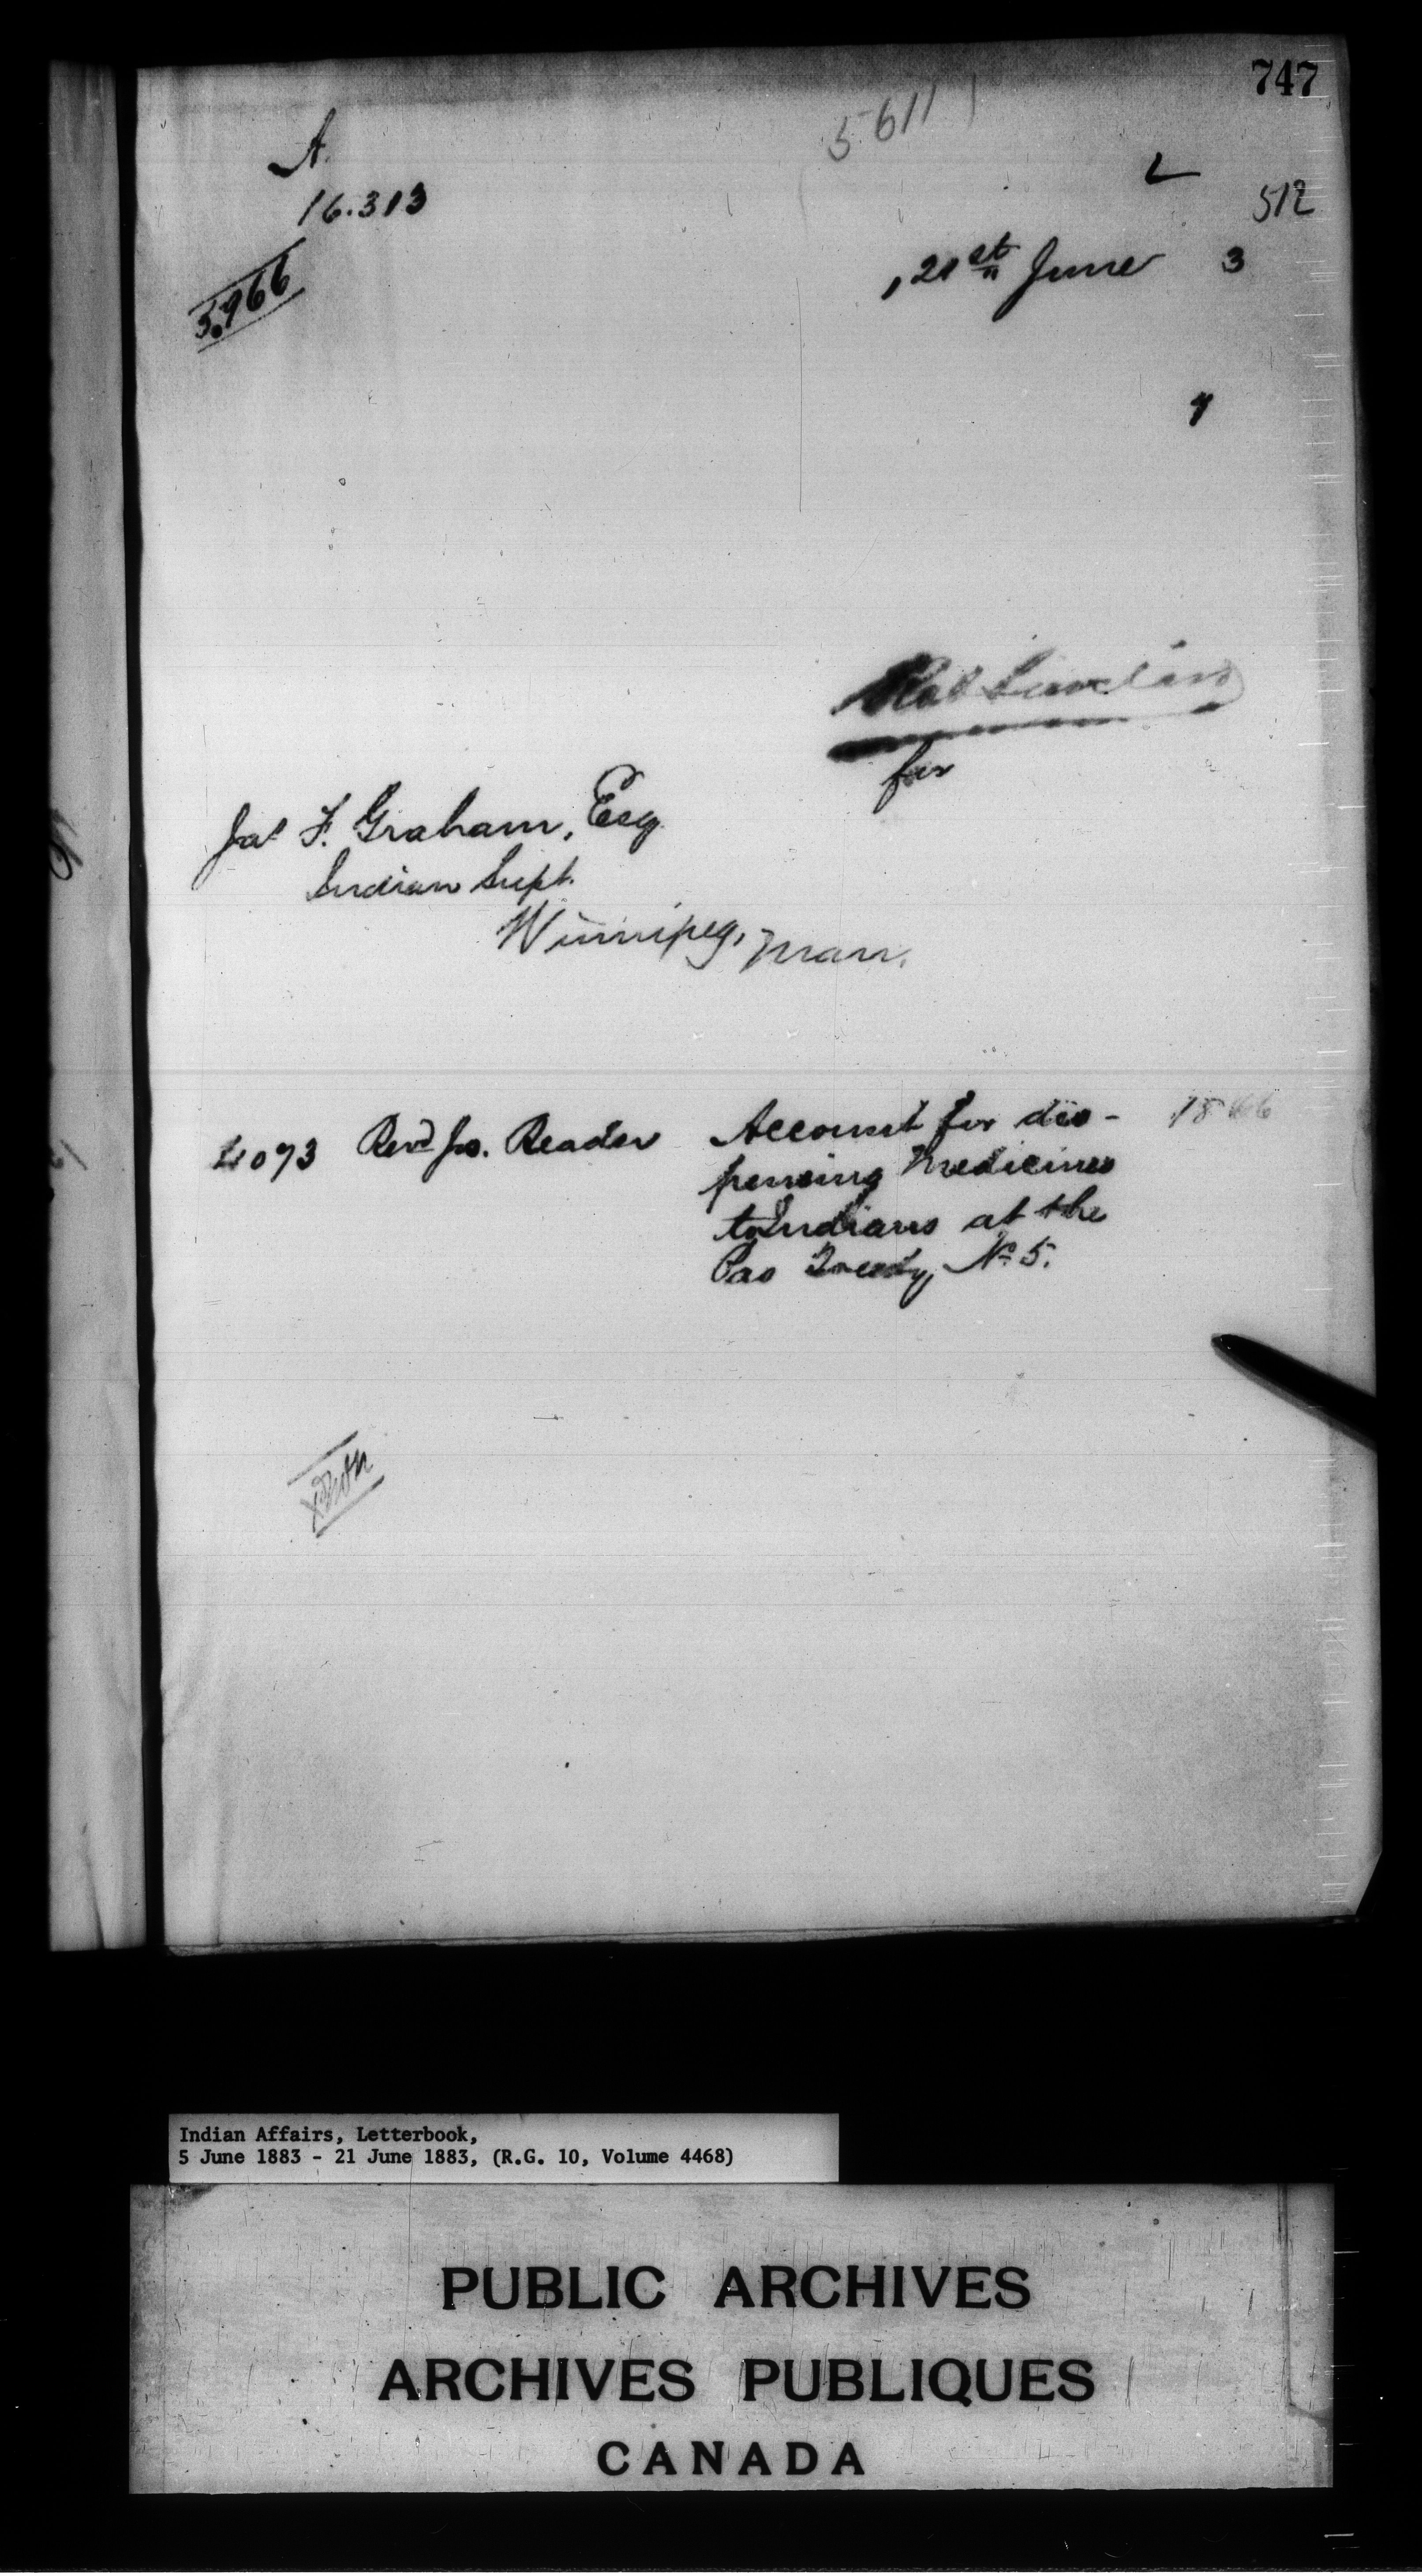 747
5611
A.
16.313
L
512
3.966
, 21st June 3
for
Jas F. Graham, Esq
Indian Supt.
Winnipeg, Man.
4073 Revd Jos. Reader Account for dis- 18 66
pensing Medicines
to Indians at the
Pas Treaty No 5.
Indian Affairs, Letterbook,
5 June 1883 - 21 June 1883, (R.G. 10, Volume 4468)
PUBLIC ARCHIVES
ARCHIVES PUBLIQUES
CANADA